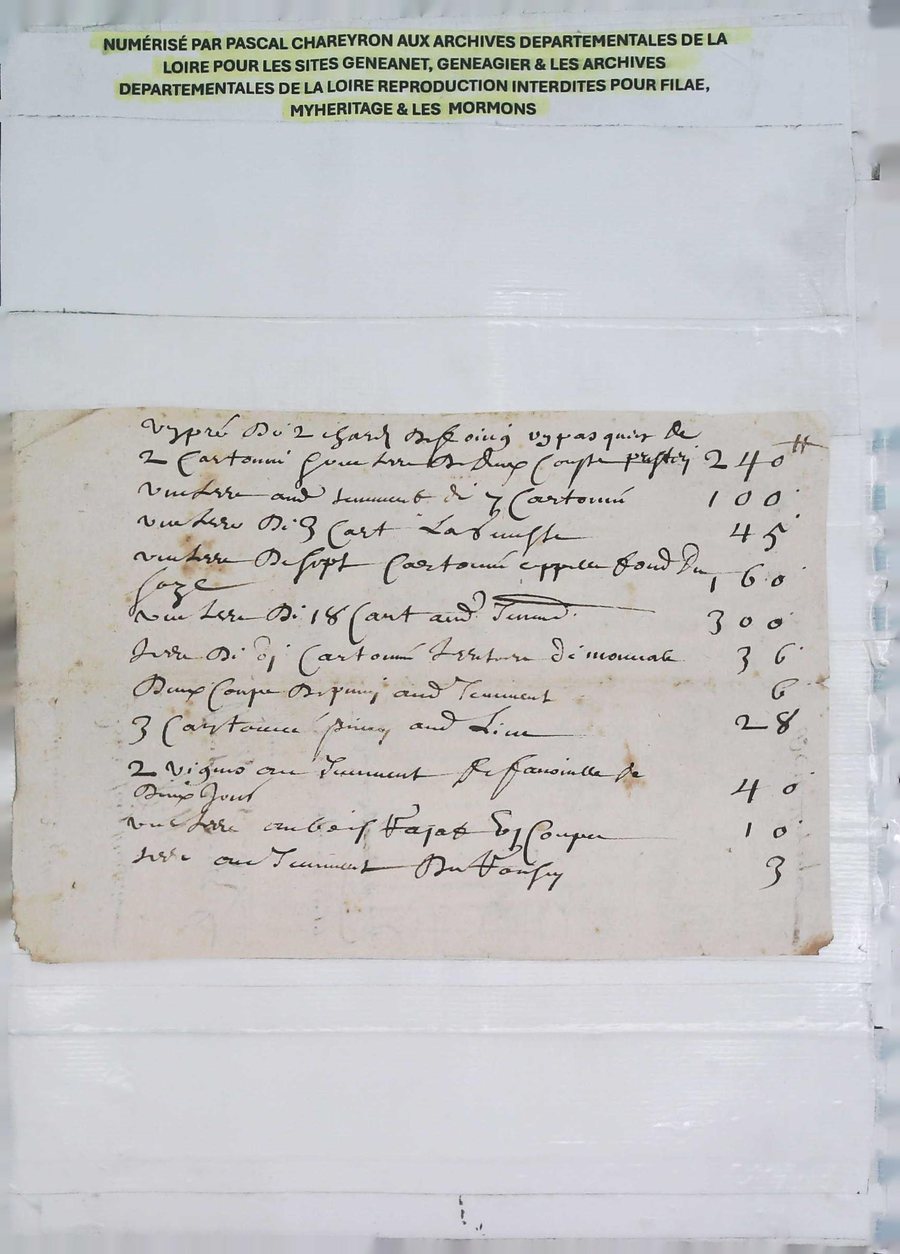 NUMÉRISÉ PAR PASCAL CHAREYRON AUX ARCHIVES DEPARTEMENTALES DE LA
LOIRE POUR LES SITES GENEANET, GENEAGIER & LES ARCHIVES
DEPARTEMENTALES DE LA LOIRE REPRODUCTION INTERDITES POUR FILAE,
MYHERITAGE & LES MORMONS
vy pré de 2 chards de foing vy pasquier de
2 Cartonné de deux Coupe 240 ₶
une terre aud tenement de 7 Cartonné 100
une terre de 3 Cart 45
une terre de sept Cartonné appellé fond du
160
une terre de 18 Cart aud tenemt 300
terre de Cartonné terroire de 36
deux Coupe de aud tenement 6
3 Cartonné aud Lieu 28
2 vignes au tenement de de
deux Jour 40
une terre au bois Coupe 10
terre au tenement du 3